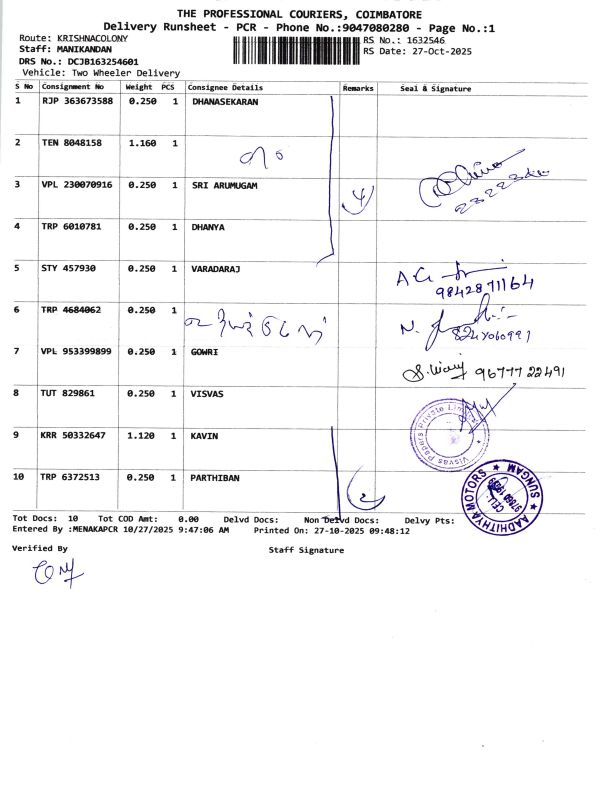 THE PROFESSIONAL COURIERS, COIMBATORE
Delivery Runsheet - PCR - Phone No.:9047080280 - Page No.:1
Route: KRISHNACOLONY
RS No.: 1632546
Staff: MANIKANDAN
RS Date: 27-Oct-2025
DRS No.: DCJB163254601
Vehicle: Two Wheeler Delivery
S No Consignment No Weight PCS Consignee Details Remarks Seal & Signature
1 RJP 363673588 0.250 1 DHANASEKARAN
2 TEN 8048158 1.160 1
3 VPL 230070916 0.250 1 SRI ARUMUGAM 4
4 TRP 6010781 0.250 1 DHANYA
5 STY 457930 0.250 1 VARADARAJ
9842871164
6 TRP 4684062 0.250 1
7 VPL 953399899 0.250 1 GOWRI
96777 22491
8 TUT 829861 0.250 1 VISVAS
Visvas Papers Private Limited
9 KRR 50332647 1.120 1 KAVIN
10 TRP 6372513 0.250 1 PARTHIBAN 2
AADHITHYA MOTORS ★ SUNGAM ★
Tot Docs: 10 Tot COD Amt: 0.00 Delvd Docs: Non Delvd Docs: Delvy Pts:
Entered By :MENAKAPCR 10/27/2025 9:47:06 AM Printed On: 27-10-2025 09:48:12
Verified By Staff Signature